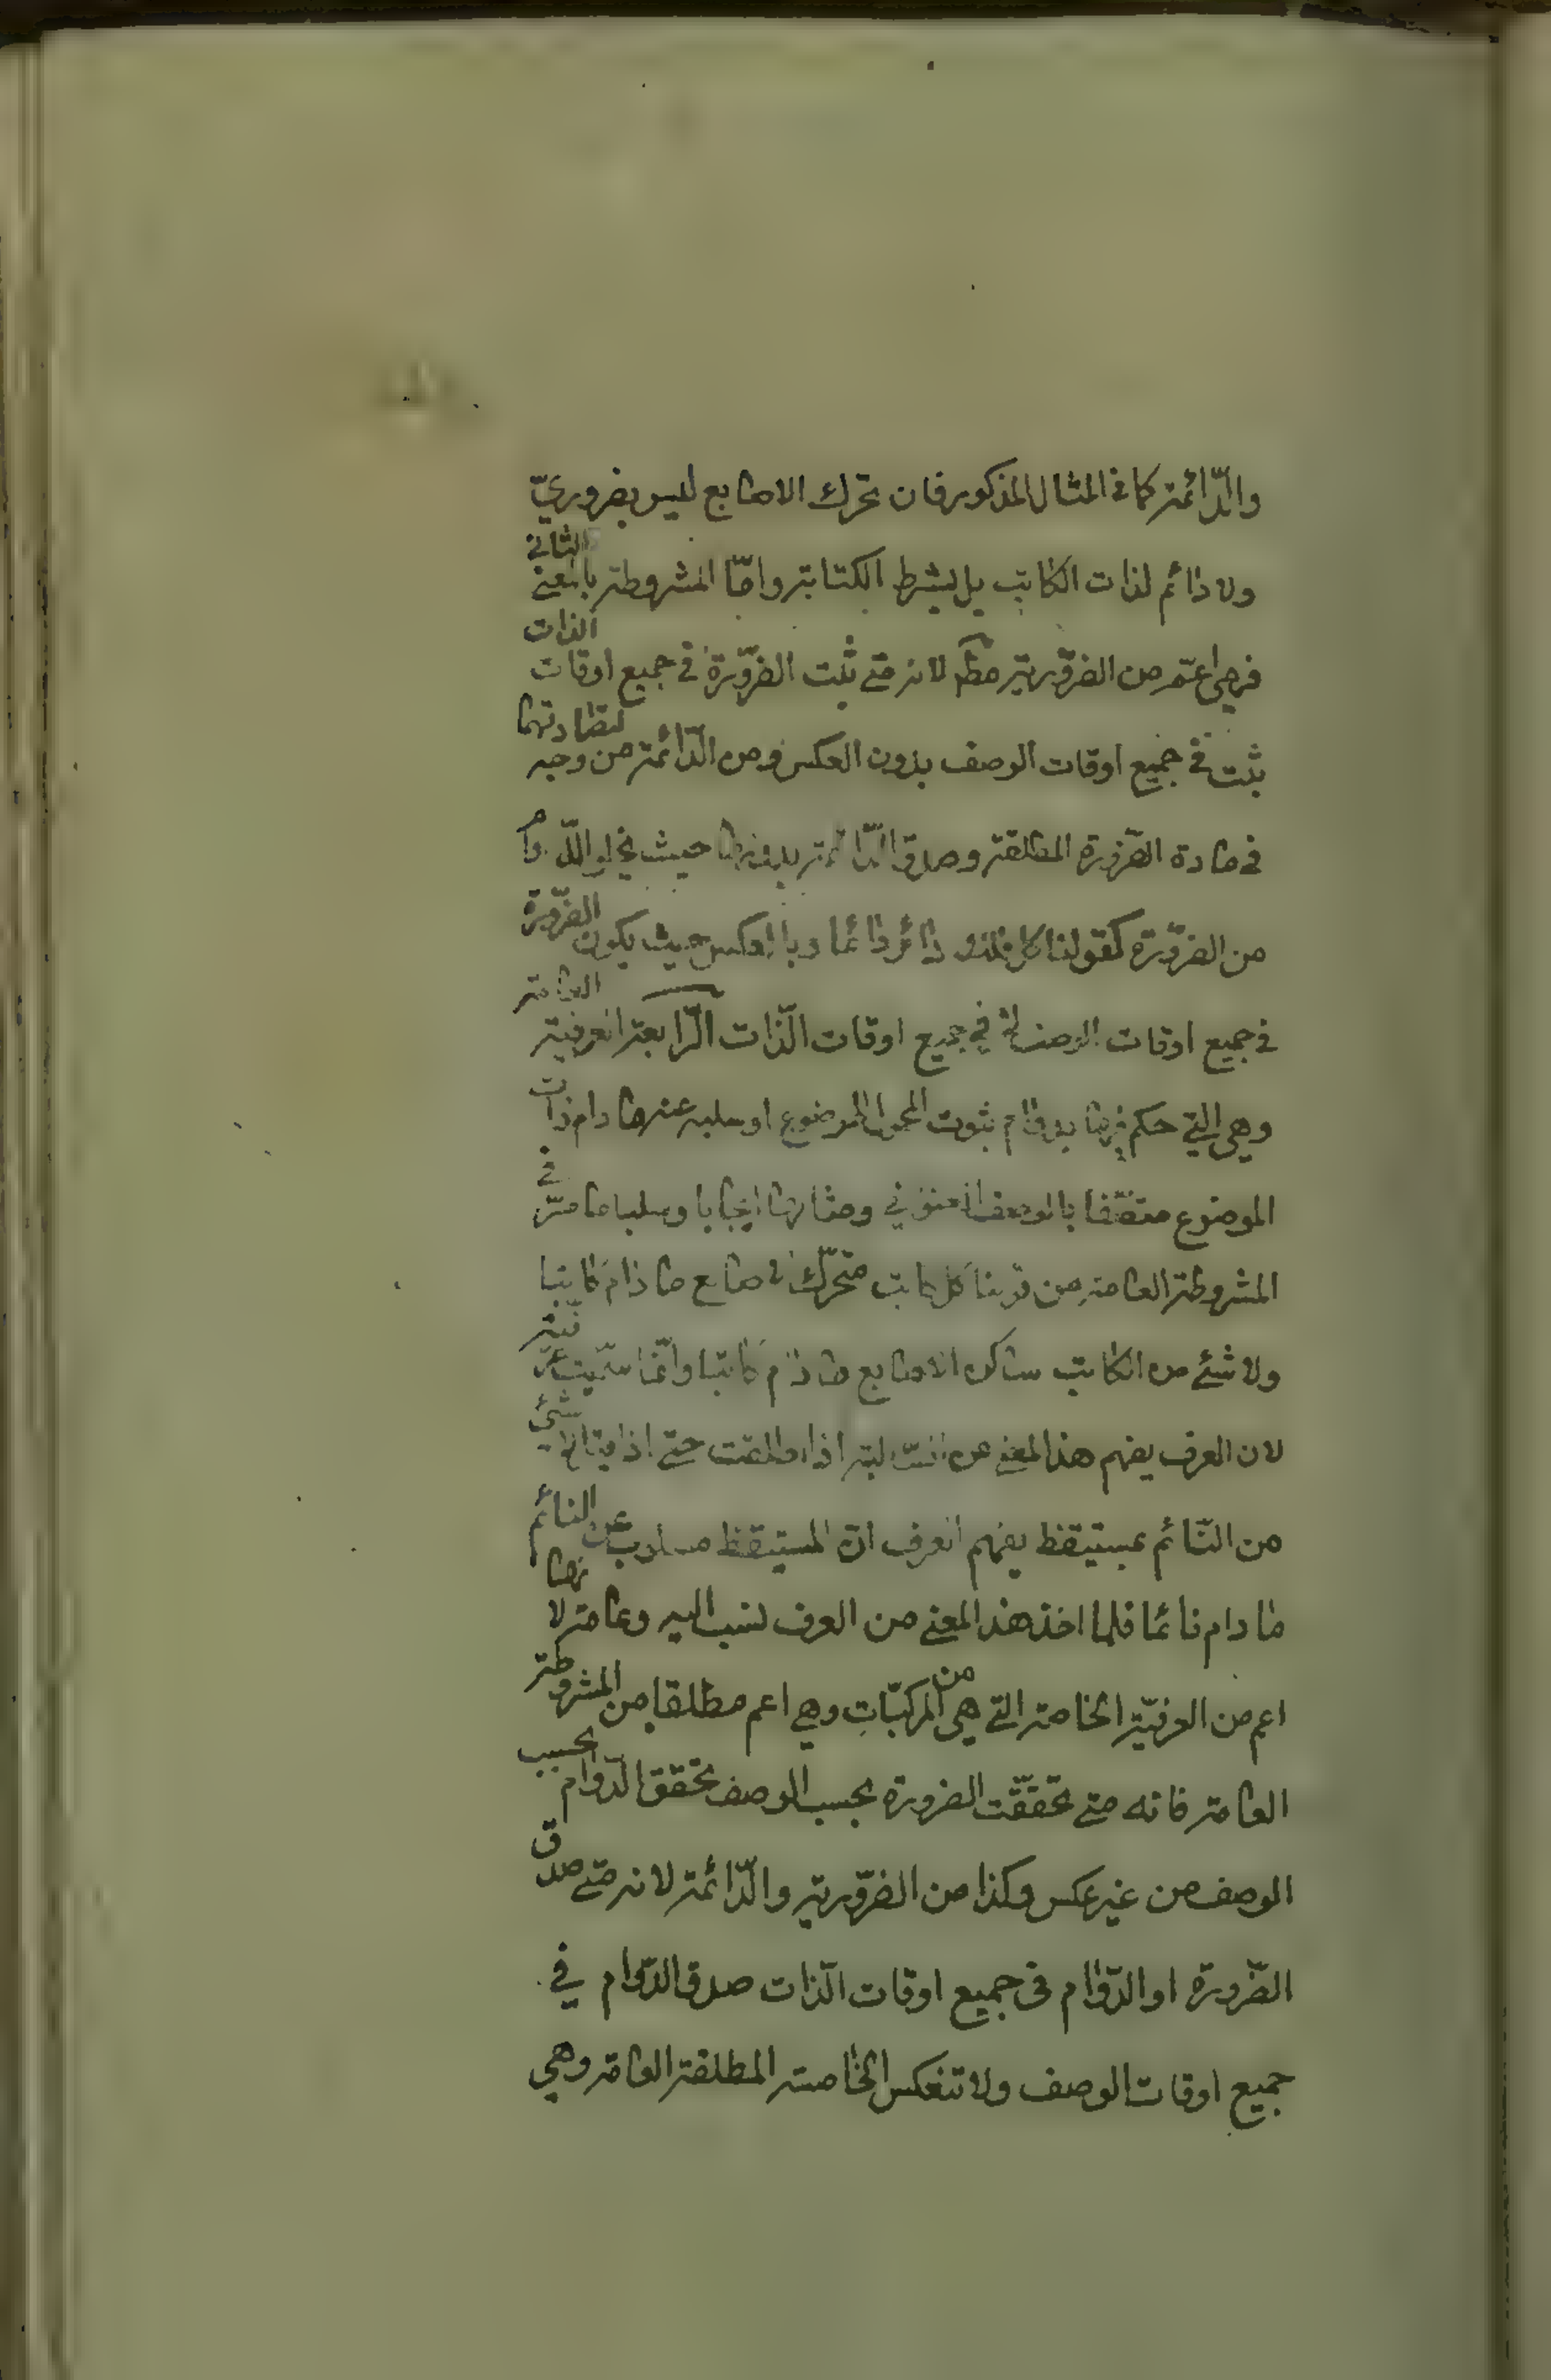 والدّائمة كما فی المثال المذکور فان تحرك الاصابع لیس بضروريّ
ولا دائم لذات الكاتب بل بشرط الكتابة وامّا المشروطة بالمعنى الثانی
فهي اعمّ من الضروّرية مطلقا لانه متى ثبت الضروّرة فی جميع اوقات الذات
ثبت فی جميع اوقات الوصف بدون العكس ومن الدّائمة من وجه لتصادقهما
فی مادة الضّرورة المطلقة وصدق الدّائمة بدونها حيث يخلو الدّوام
من الضروّرة كقولنا كل فلك دائر دائما وبالعكس حيث يكون الضرّورة
فی جميع اوقات الوصف لا في جميع اوقات الّذات الرّابعة العرفية العامة
وهي التي حكم فيها بدوام ثبوت المحمول للموضوع او سلبه عنه ما دام ذات
الموضوع متصّفا بالوصف العنواني ومثالها ايجابا وسلبا ما مرّ في
المشروطة العامة من قولنا كل كاتب متحرّك الاصابع ما دام كاتبا
ولا شئ من الكاتب ساكن الاصابع ما دام كاتبا وانّما سمّيت عرفيّة
لان العرف يفهم هذا المعنى من السّالبة اذا اطلقت حتى اذا قيل لا شئ
من النّائم بمستيقظ يفهم العرف انّ المستيقظ مسلوب عن النائم
ما دام نائما فلما اخذ هذا المعنى من العرف نسب اليه وعامة لانها
اعم من العرفيّة الخاصة التي هي من المركبّات وهي اعم مطلقا من المشروطة
العامة فانه متى تحققّت الضرورة بحسب الوصف تحقق الدّوام بحسب
الوصف من غير عكس وكذا من الضروّرية والدّائمة لانه متى صدق
الضّرورة او الدّوام فی جميع اوقات الّذات صدق الدّوام في
جميع اوقات الوصف ولا تنعكس الخامسة المطلقة العامة وهي